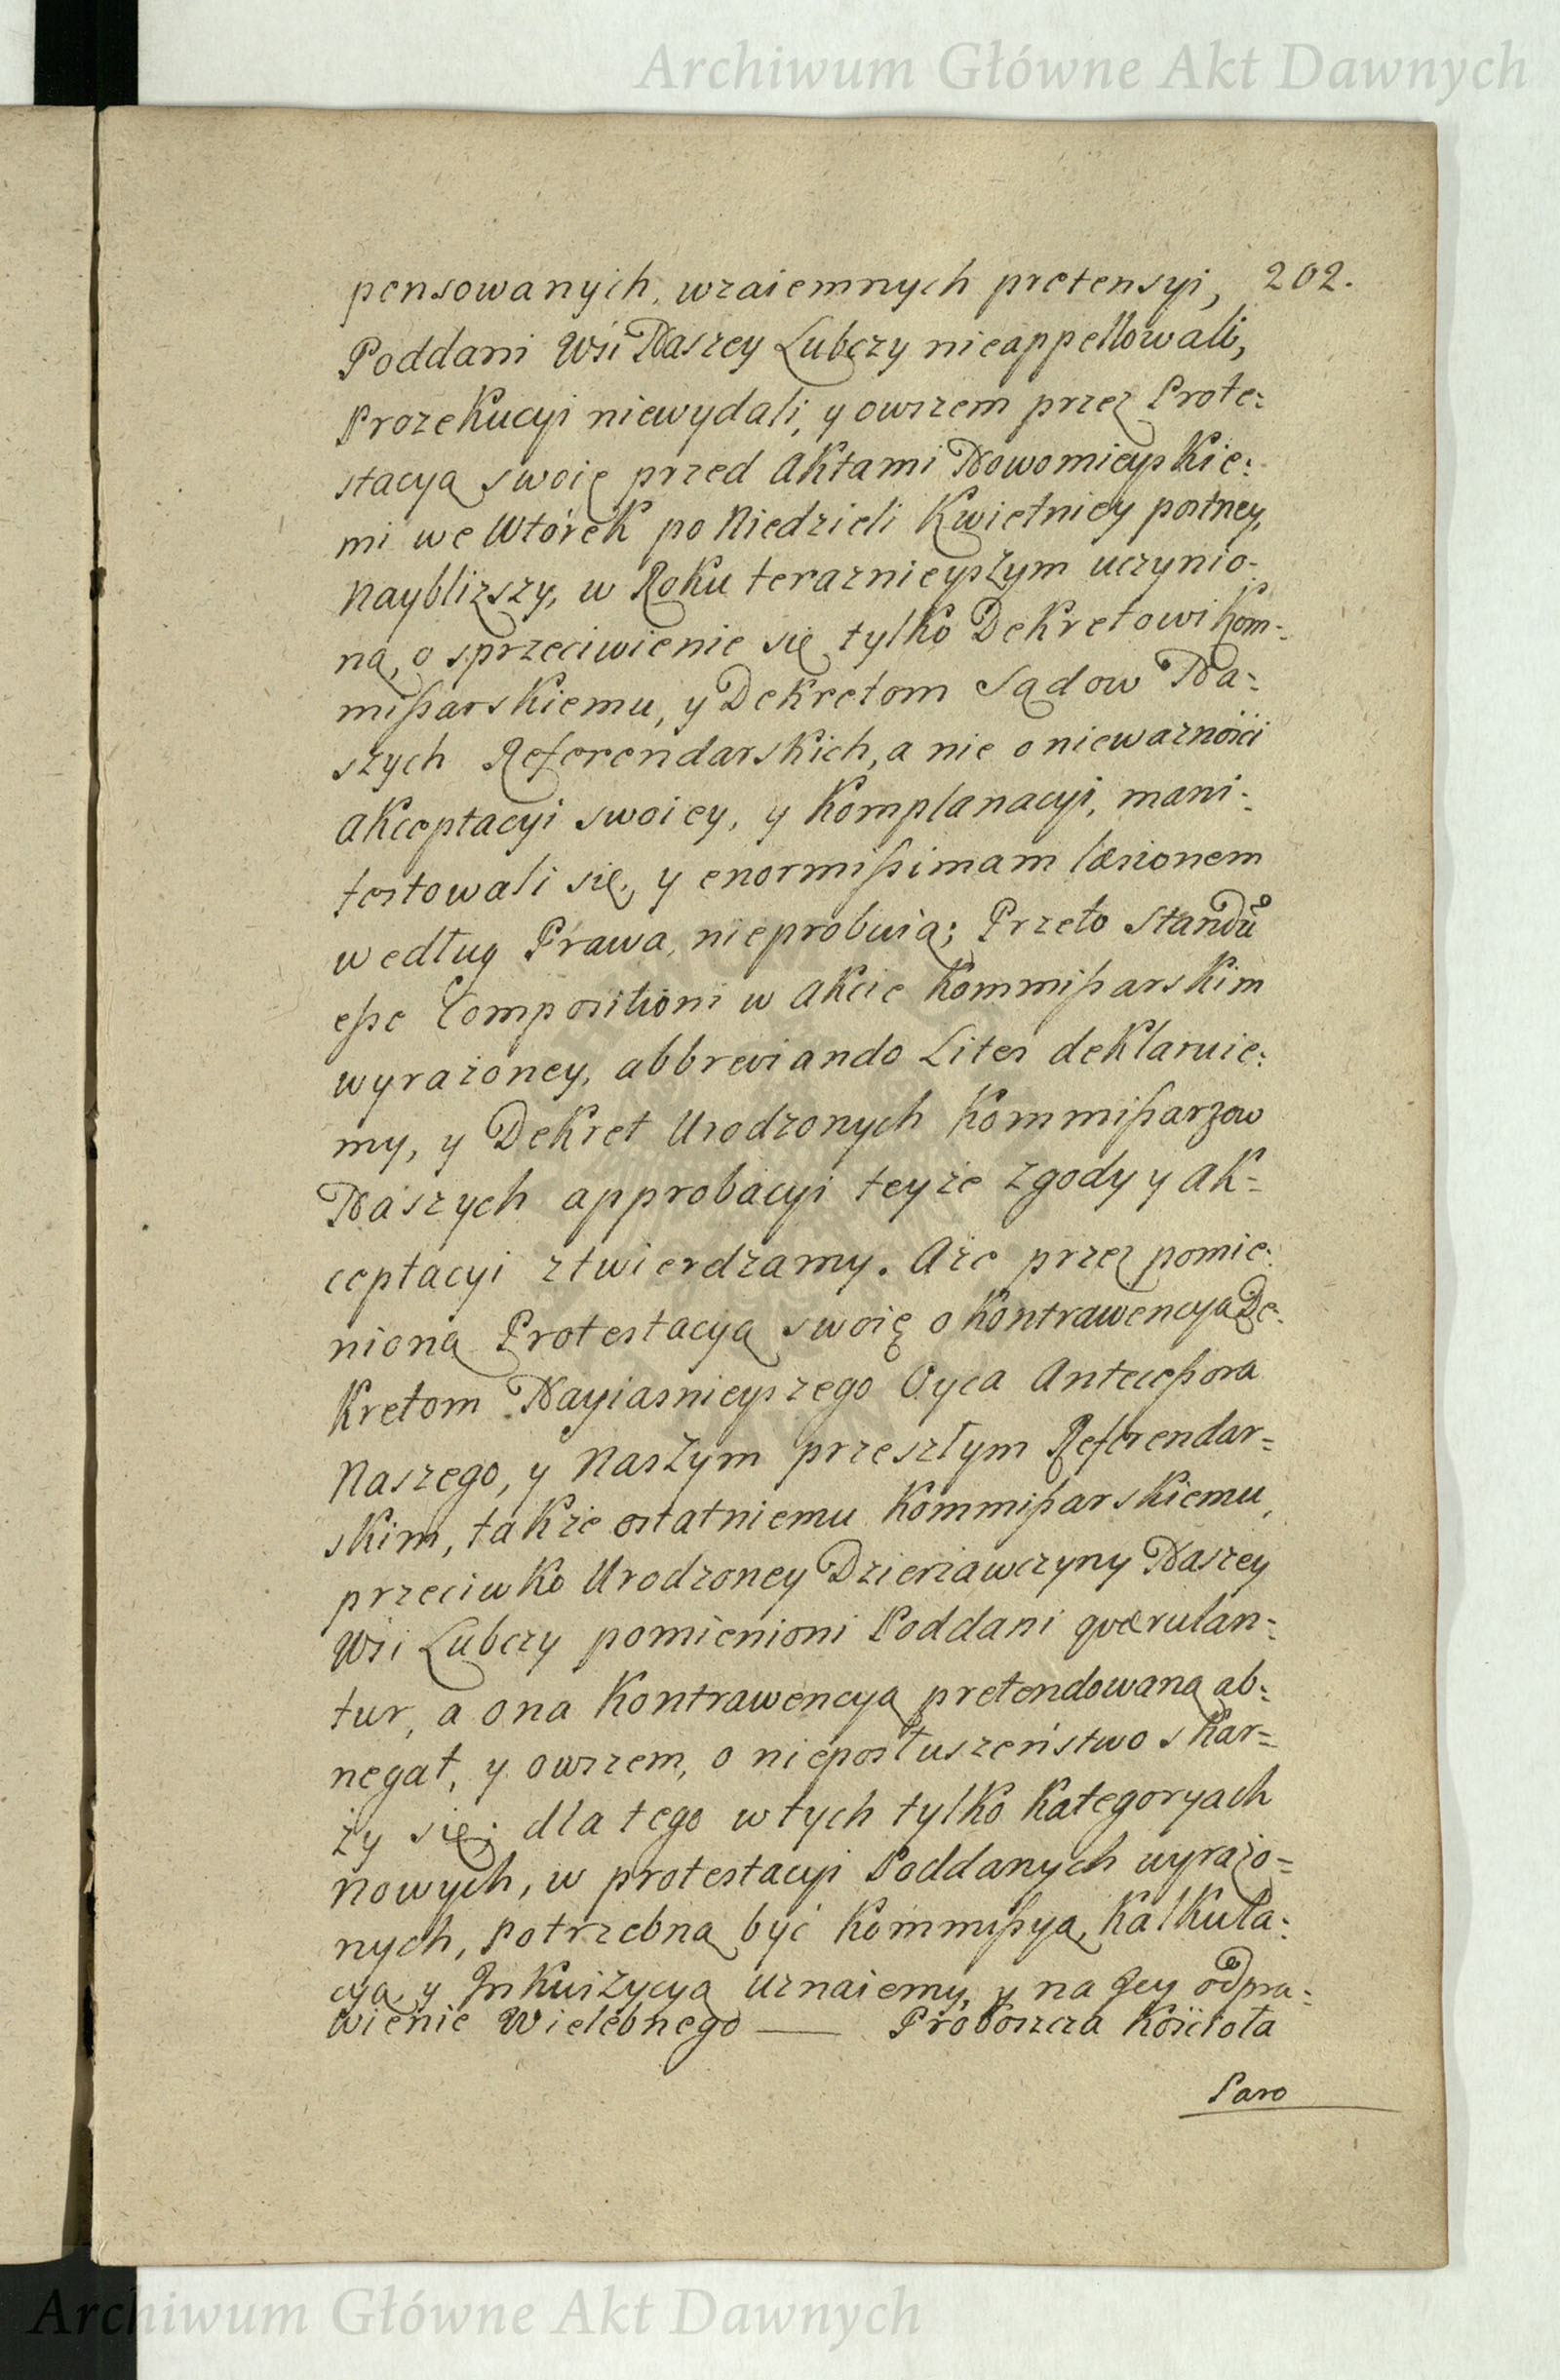 Archiwum Główne Akt Dawnych
pensowanych, wzaiemnych pretensyi, 202.
Poddani Wsi Naszey Lubczy nieappellowali,
Prozekucyi niewydali, y owszem przez Prote:
stacyą swoię przed Aktami Nowomieyskie:
mi we Wtórek po Niedzieli Kwietniey postney,
Naybliższy, w Roku teraznieyszym uczynio:
ną, o sprzeciwienie się tylko Dekretowi Kom:
mißarskiemu, y Dekretom Sądow Na:
szych Referendarskich, a nie o nieważności
Akceptacyi swoiey, y Komplanacyi, mani:
festowali się, y enormißimam læsionem
według Prawa, nieprobuią; Przeto Standũ
eße Compositioni w Akcie Kommißarskim
wyrażoney, abbreviando Lites deklaruie:
my, y Dekret Urodzonych Kommißarzow
Naszych approbacyi teyże zgody y Ak=
ceptacyi ztwierdzamy. Aże przez pomie:
nioną Protestacyą swoię o Kontrawencyą De:
kretom Nayiasnieyszego Oyca Anteceßora
Naszego, y Naszym przeszłym Referendar=
skim, także ostatniemu Kommißarskiemu,
przeciwko Urodzoney Dzierżawczyny Naszey
Wsi Lubczy pomienioni Poddani qværulan=
tur, a ona Kontrawencyą pretendowaną ab:
negat, y owszem, o nieposłuszeństwo skar=
ży się; dla tego w tych tylko Kategoryach
Nowych, w protestacyi Poddanych wyrażo=
nych, Potrzebną być Kommißyą, Kalkula:
cyą, y Inkwizycyą uznaiemy, y na Jey odpra:
wienie Wielebnego —— Proboszcza Kościoła
Paro
Archiwum Główne Akt Dawnych